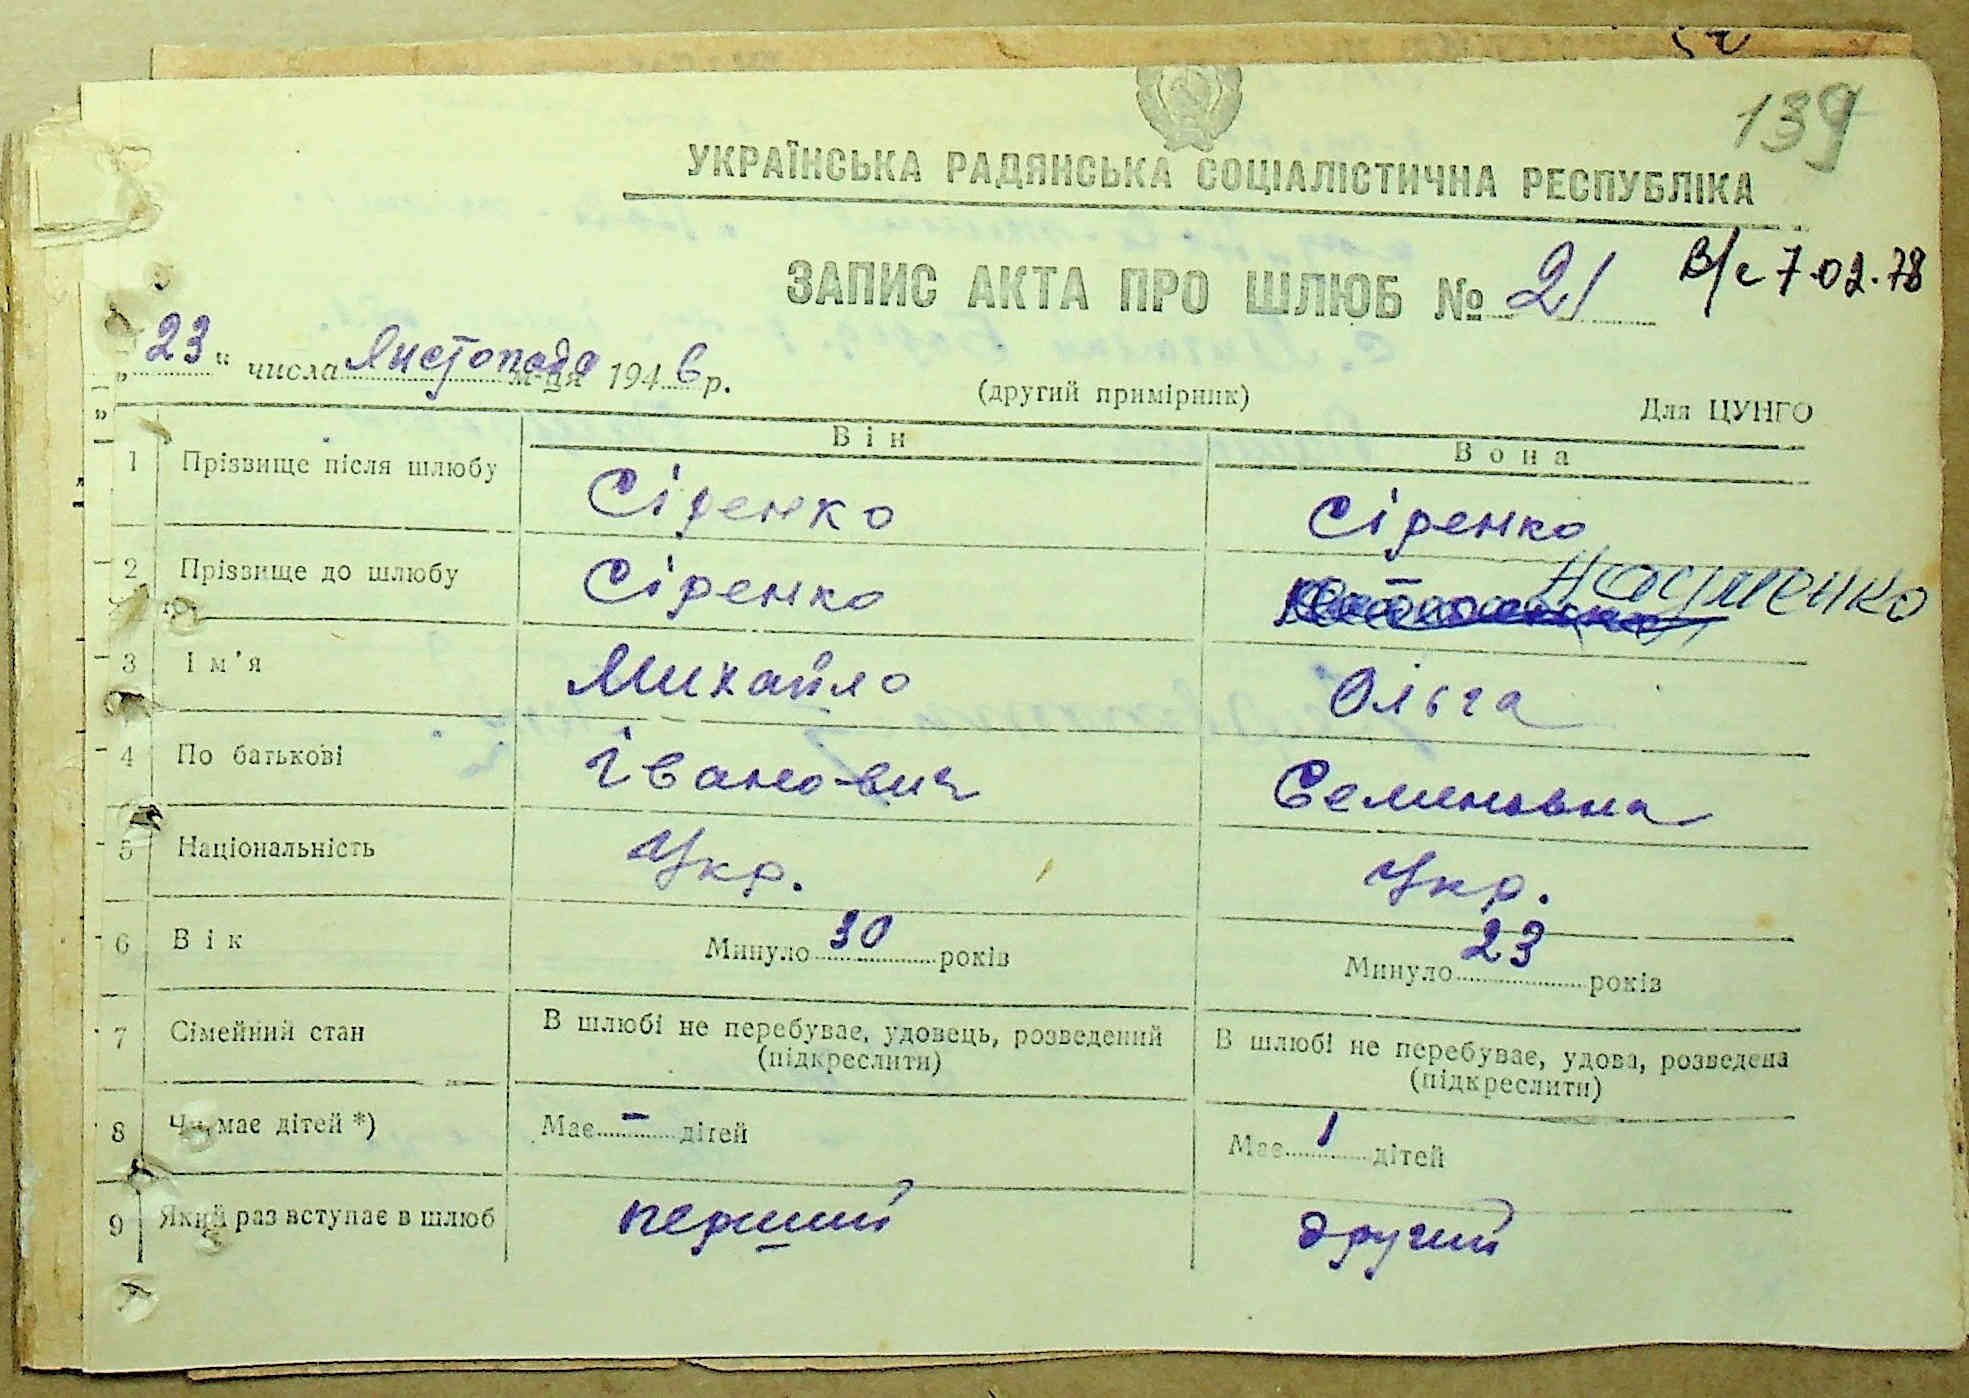 139
УКРАЇНСЬКА РАДЯНСЬКА СОЦІАЛІСТИЧНА РЕСПУБЛІКА
ЗАПИС АКТА ПРО ШЛЮБ № 21
В/с 7.02.78
„ 23 " числа Листопада м-ця 1946 р.
(другий примірник)
Для ЦУНГО
Він Вона
1 Прізвище після шлюбу Сіренко Сіренко
2 Прізвище до шлюбу Сіренко Науменко
3 Ім'я Михайло Ольга
4 По батькові Іванович Семеновна
5 Національність Укр. Укр.
6 Вік Минуло 30 років Минуло 23 років
7 Сімейний стан В шлюбі не перебуває, удовець, розведений В шлюбі не перебуває, удова, розведена
(підкреслити) (підкреслити)
8 Чи має дітей *) Має – дітей Має 1 дітей
9 Який раз вступає в шлюб перший другий